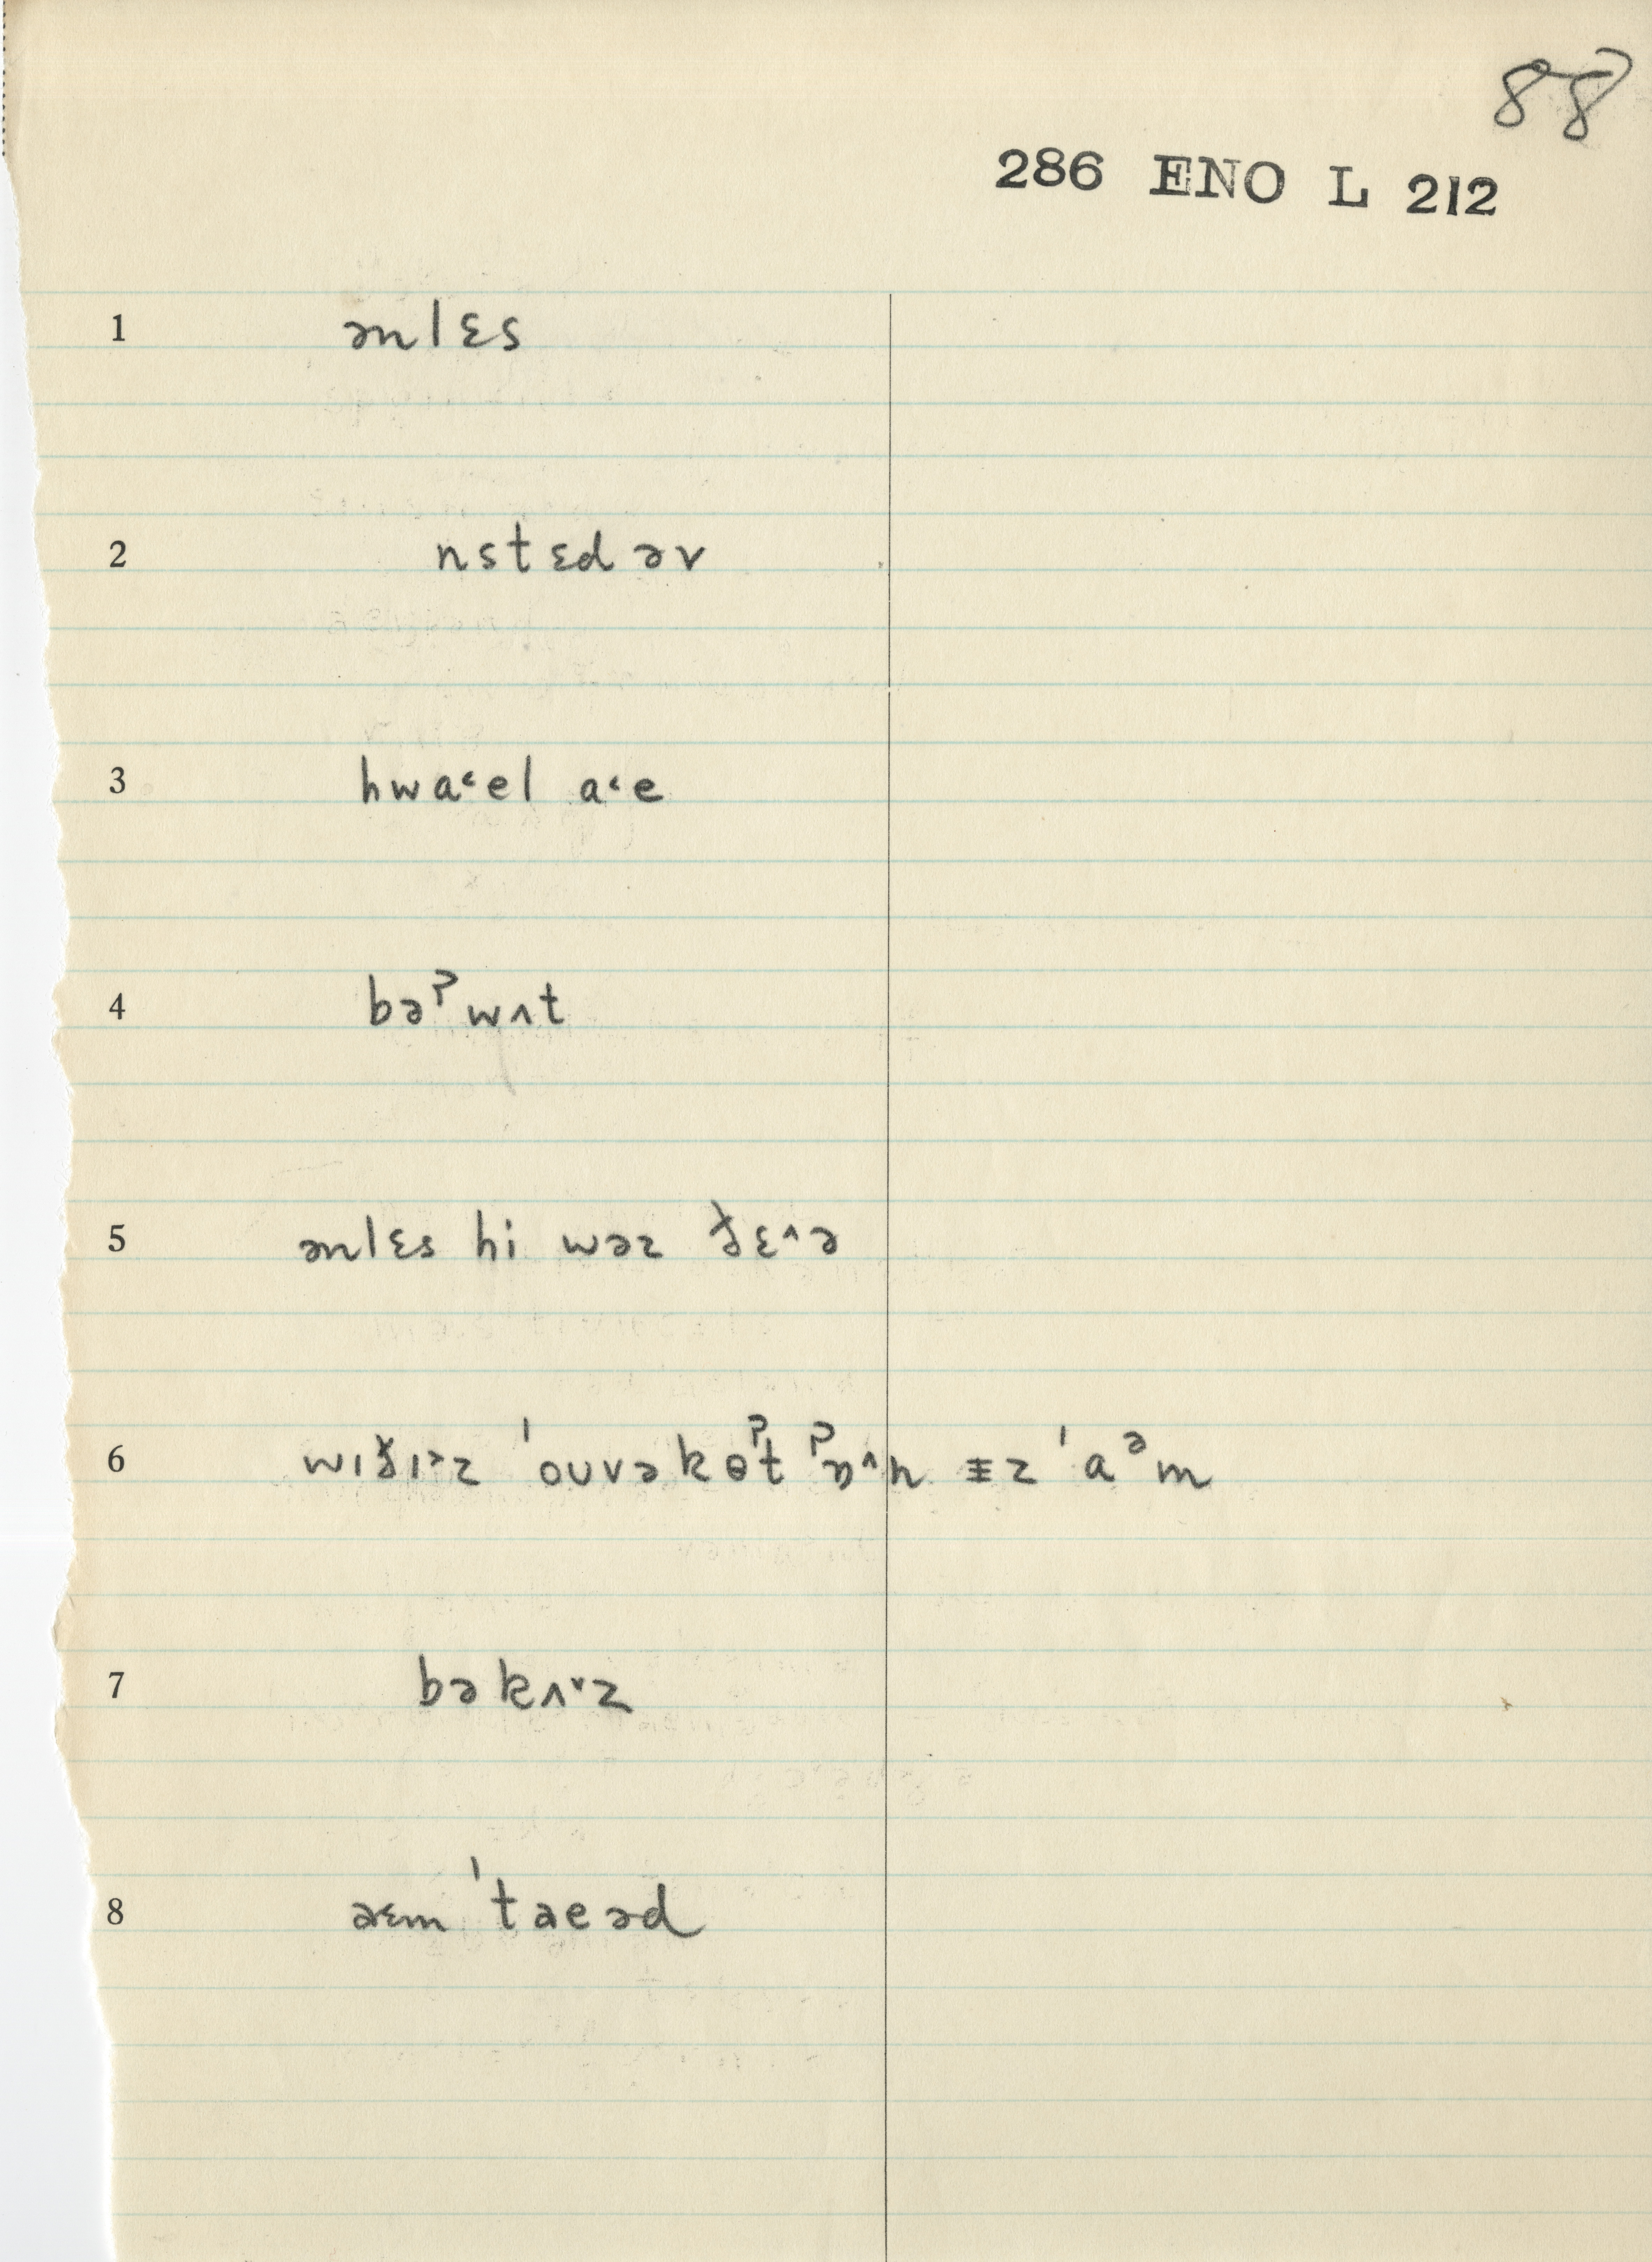 88
286 ENO L 212
1 ənlɛs
2 nstɛdəv
3 hwa˂el a˂e
4 bəˀwʌt
5 ənlɛs hi wəz ðɛ˄ə
6 wɪðɪ˃z ˈouvəkɵˀt ˀɒ˄n ɪz ˈaᵊm
7 bəkʌ˅z
8 əɛm ˈtaeəd